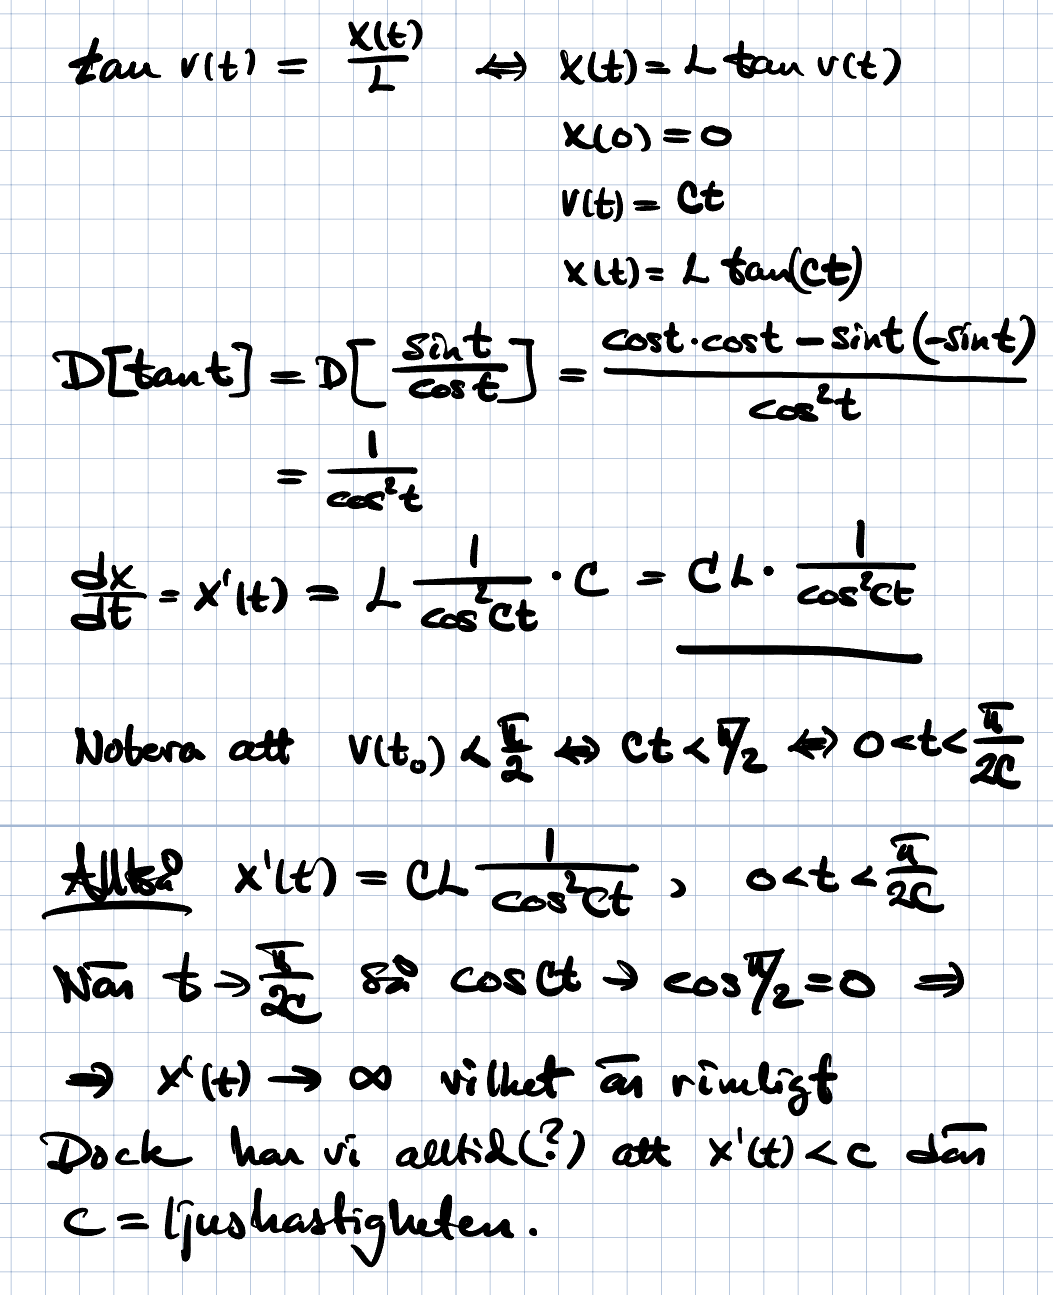 tan v(t) = x(t)/L ⇔ x(t) = L tan v(t)
x(0) = 0
v(t) = Ct
x(t) = L tan(Ct)
D[tan t] = D[sin t/cos t] = (cos t · cos t − sin t (−sin t))/cos²t
= 1/cos²t
dx/dt = x'(t) = L 1/cos²Ct · C = CL · 1/cos²Ct
Notera att v(t₀) < π/2 ⇔ Ct < π/2 ⇔ 0 < t < π/2C
Alltså x'(t) = CL 1/cos²Ct , 0 < t < π/2C
När t → π/2C så cos Ct → cos π/2 = 0 ⇒
⇒ x'(t) → ∞ vilket är rimligt
Dock har vi alltid(?) att x'(t) < c där
c = ljushastigheten.